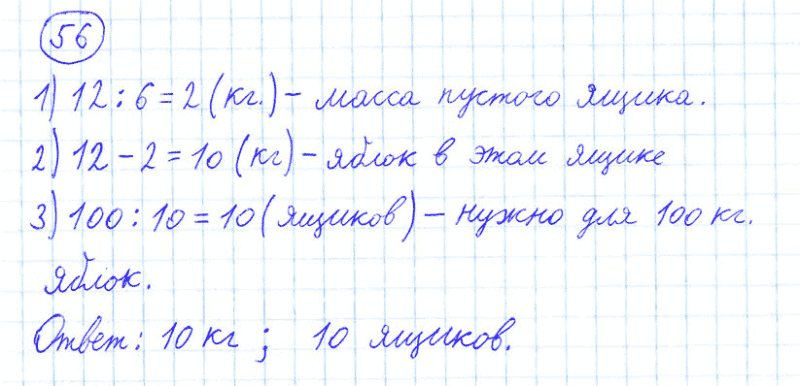 56
1) 12 : 6 = 2 (кг.) – масса пустого ящика.
2) 12 – 2 = 10 (кг) – яблок в этом ящике
3) 100 : 10 = 10 (ящиков) – нужно для 100 кг.
яблок.
Ответ: 10 кг ; 10 ящиков.